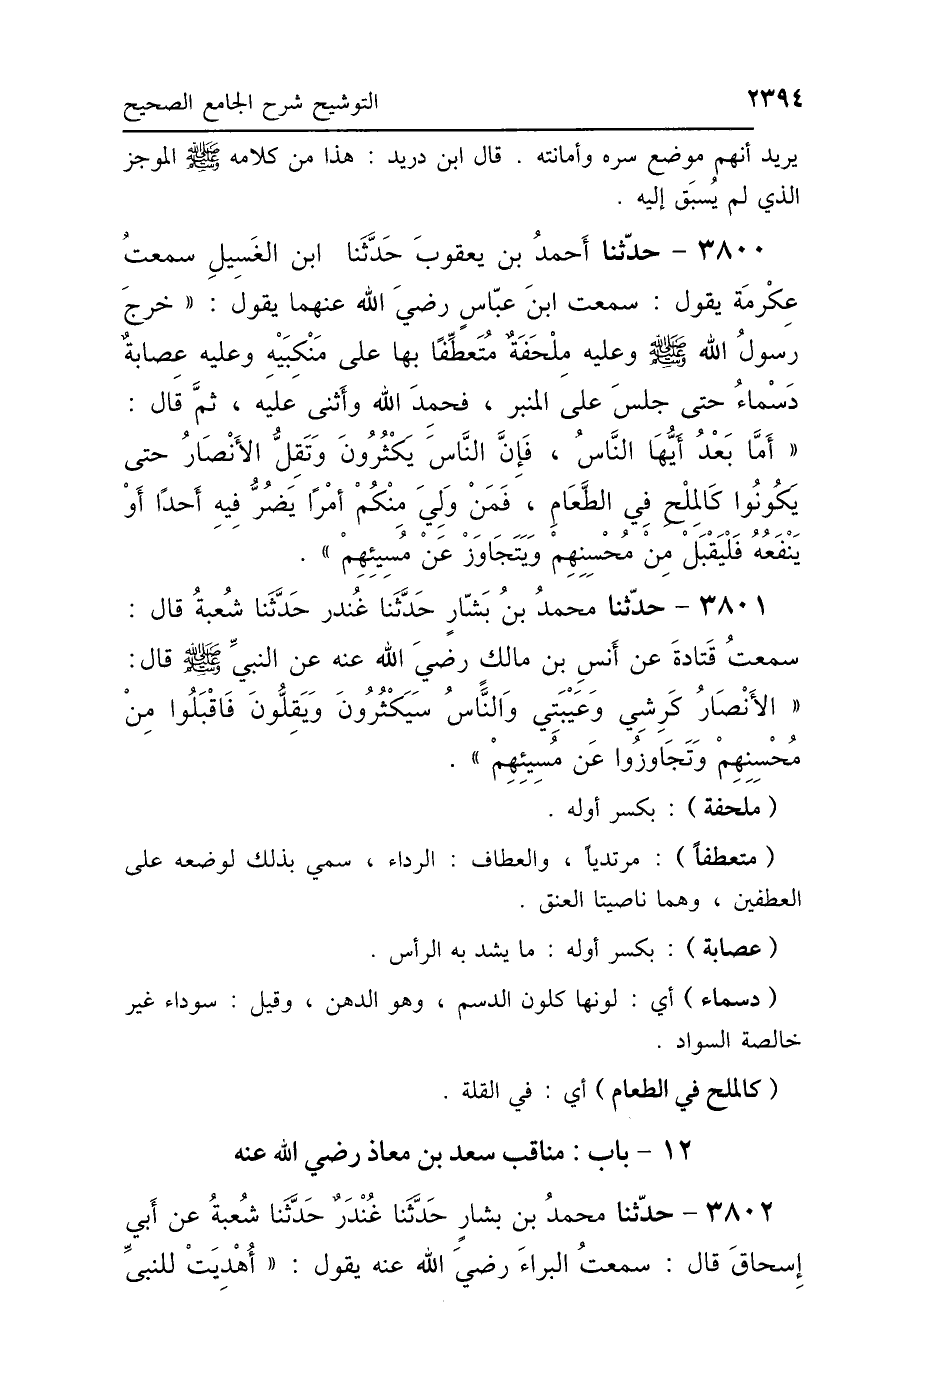 ٢٣٩٤ التوشيح شرح الجامع الصحيح
يريد أنهم موضع سره وأمانته . قال ابن دريد : هذا من كلامه ﷺ الموجز
الذي لم يُسبَق إليه .
٣٨٠٠ – حدّثنا أَحمدُ بن يعقوبَ حَدَّثَنا ابن الغَسِيلِ سمعتُ
عكْرِمَة يقول : سمعت ابنَ عبّاسٍ رضيَ الله عنهما يقول : « خرجَ
رسولُ الله ﷺ وعليه مِلْحَفَةٌ مُتَعطِّفًا بها على مَنْكِبَيْهِ وعليه عِصابةٌ
دَسْماءُ حتى جلسَ على المنبر ، فحمِدَ الله وأَثنى عليه ، ثمَّ قال :
« أَمَّا بَعْدُ أَيُّهَا النَّاسُ ، فَإِنَّ النَّاسَ يَكْثُرُونَ وَتَقِلُّ الأَنْصَارُ حتى
يَكُونُوا كَالِملْحِ فِي الطَّعَامِ ، فَمَنْ وَلِيَ مِنْكُمْ أمْرًا يَضُرُّ فِيهِ أَحدًا أَوْ
يَنْفَعُهُ فَلْيَقْبَلْ مِنْ مُحْسِنِهِمْ وَيَتَجَاوَزْ عَنْ مُسِيئِهِمْ » .
٣٨٠١ – حدّثنا محمدُ بنُ بَشّارٍ حَدَّثَنا غُندر حَدَّثَنا شُعبةُ قال :
سمعتُ قَتادةَ عن أَنسِ بن مالكٍ رضيَ الله عنه عن النبيِّ ﷺ قال:
« الأَنْصَارُ كَرِشِي وَعَيْبَتِي وَالنَّاسُ سَيَكْثُرُونَ وَيَقِلُّونَ فَاقْبَلُوا مِنْ
مُحْسِنِهِمْ وَتَجَاوَزُوا عَن مُسِيئِهِمْ » .
( ملحفة ) : بكسر أوله .
( متعطفاً ) : مرتدياً ، والعطاف : الرداء ، سمي بذلك لوضعه على
العطفين ، وهما ناصيتا العنق .
( عصابة ) : بكسر أوله : ما يشد به الرأس .
( دسماء ) أي : لونها كلون الدسم ، وهو الدهن ، وقيل : سوداء غير
خالصة السواد .
( كالملح في الطعام ) أي : في القلة .
١٢ – باب : مناقب سعد بن معاذ رضي الله عنه
٣٨٠٢ – حدّثنا محمدُ بن بشارٍ حَدَّثَنا غُنْدَرٌ حَدَّثَنا شُعبةُ عن أَبي
إِسحاقَ قال : سمعتُ البراءَ رضيَ الله عنه يقول : « أُهْدِيَتْ للنبيِّ